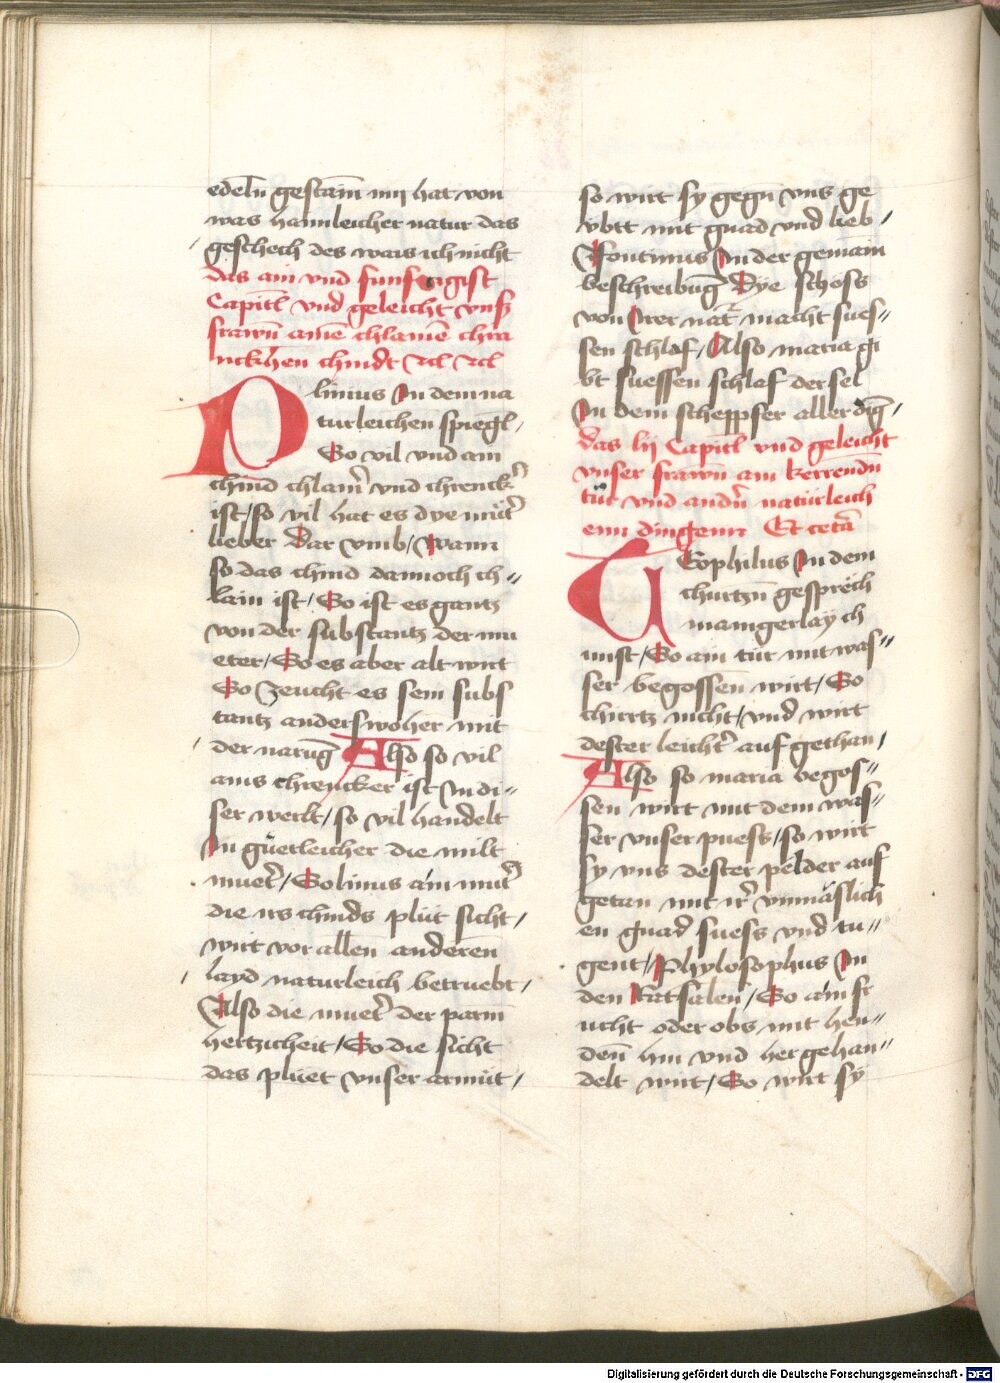 edelñ gestain nyͤ hat von
was hannleicher natur das
geschech des wais ich nicht
Das ain vnd funfczigist
Capitl vnd geleicht vnsẜ
frawn̄ ainē chlainē chra
nckhen chindt ꝛcl̄ ꝛcl̄
Plinius In dem na
turleichen spiegl /
So vil vnd ain
chind chlain̄ vnd chrenck̄
ist / so vil hat es dye müt̄
lieber Dar vmb / Wann
so das chind dannoch ch〃
lain ist / So ist es gantz
von der substantz der mu
eter / So es aber alt wirt
So zeucht es sein subs
tantz anderswoher mit
der narūg Also so vil
ains chrencker ist In di〃
ser werlt / so vil handelt
In güetleicher die milt
muet̄ / Solinus ain mut̄
die irs chinds plüt sicht /
wirt vor allen anderen
layd naturleich betruebt /
Also die muet̄ der parm
hertzicheit / So die sicht
das plüet vnser armüt /
so wirt sy gegn vns ge
übtt mit gnad vnd lieb /
Fontinus In der gemain
beschreibūg Dye schoss
von Irer nat̄ macht sues〃
sen schlaf / Also maria gi
bt suessen schlaf der sel
In dem scheppfer aller dīg /
Das lij Capitl vnd geleicht
vnser frawn̄ ain kerrendn̄
tür vnd andn̄ natürleich
enn dingenn Et cetā
Teophilus In dem
churtzn̄ gespräch
mainigerlay ch
unst / So ain tür mit was〃
ser begossen wirt / So
chirrtz nicht / vnd wirt
dester leicht̄ auf gethan /
Also so maria begos〃
sen wirt mit dem was〃
ser vnser puess / so wirt
sy vns dester pelder auf
getan mit ir̄ vnmäslich
en gnad suess vnd tu〃
gent / Phylosophus In
den Ratsalen / So ain fr
ucht oder obs mit hen〃
den̄ hin vnd her gehan〃
delt wirt / So wirt sy
Digitalisierung gefördert durch die Deutsche Forschungsgemeinschaft - DFG